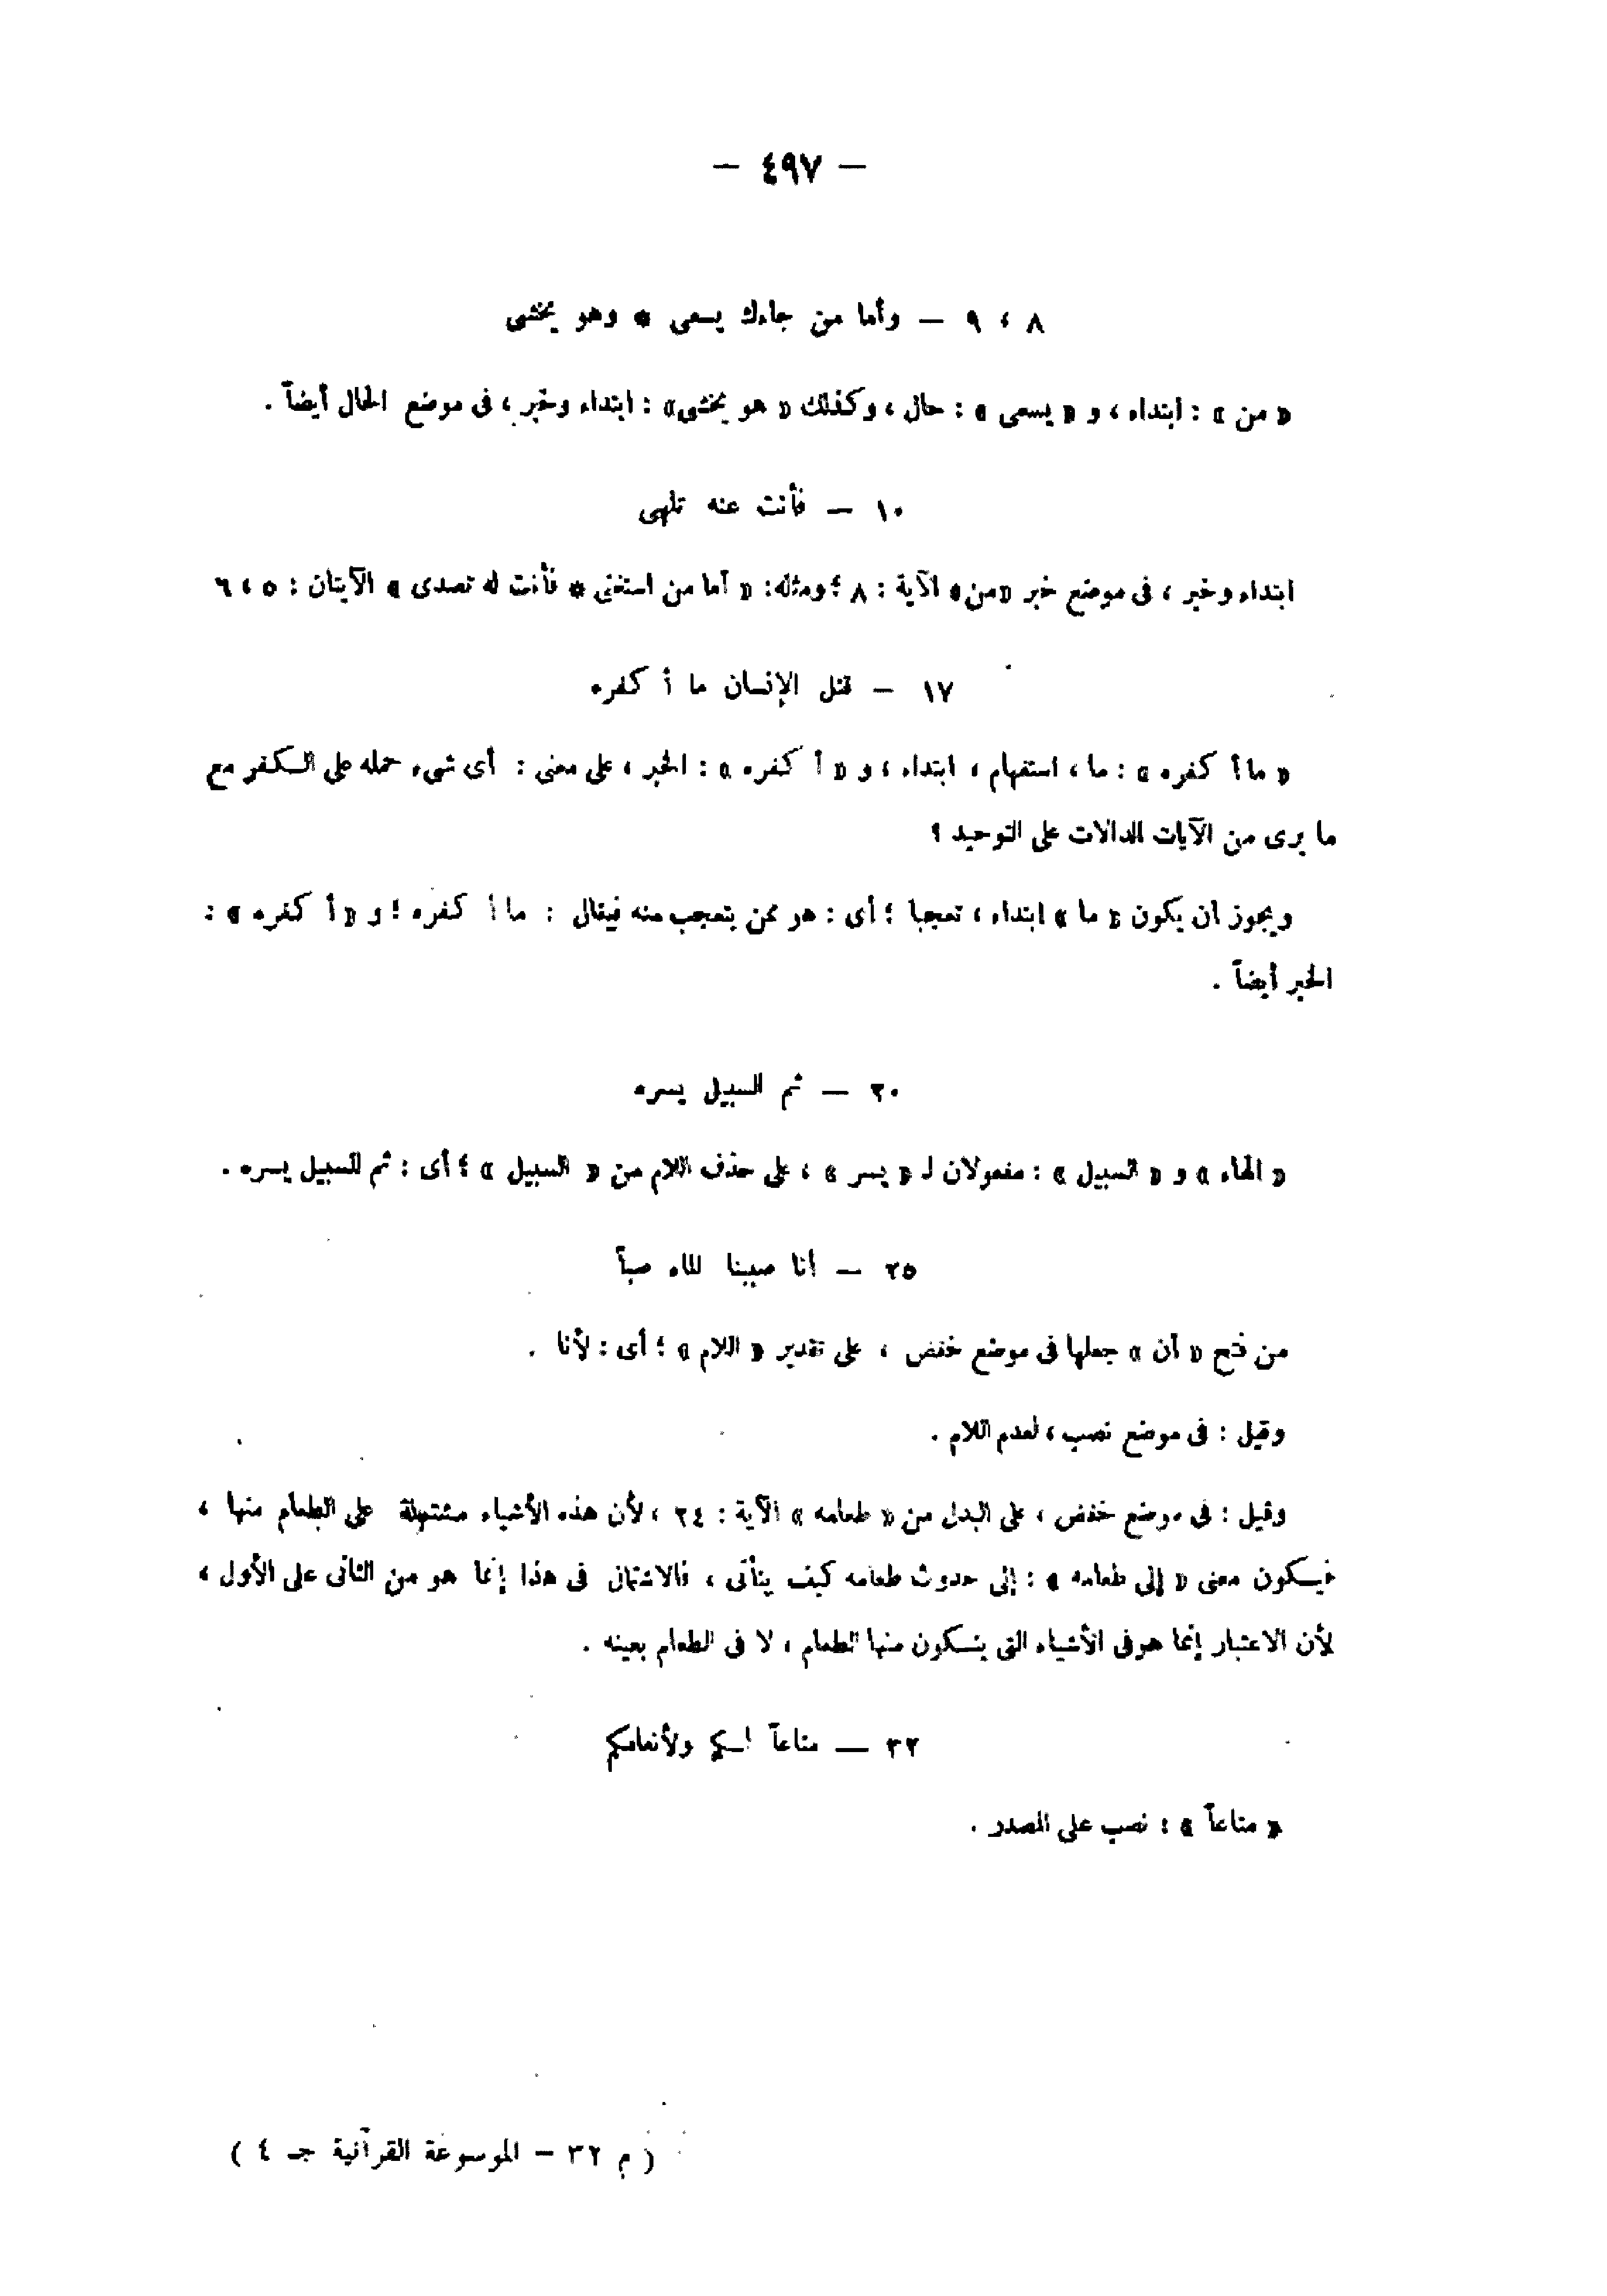 — ٤٩٧ —
٨ ، ٩ — وأما من جاءك يسعى * وهو يخشى
« من » : ابتداء ، و « يسعى » : حال ، وكذلك « هو يخشى » : ابتداء وخبر ، فى موضع الحال أيضاً .
١٠ — فأنت عنه تلهى
ابتداء وخبر ، فى موضع خبر «من» الآية : ٨ ؛ ومثله: « أما من استغنى * فأنت له تصدى » الآيتان : ٥ ، ٦
١٧ — قتل الإنسان ما أكفره
« ما أكفره » : ما ، استفهام ، ابتداء ، و « أكفره » : الخبر ، على معنى : أى شىء حمله على الكفر مع
ما يرى من الآيات الدالات على التوحيد ؟
ويجوز أن يكون « ما » ابتداء ، تعجبا ؛ أى : هو ممن يتعجب منه فيقال : ما أكفره ! و « أكفره » :
الخبر أيضاً .
٢٠ — ثم السبيل يسره
« الهاء » و « السبيل » : مفعولان لـ « يسر » ، على حذف اللام من « السبيل » ؛ أى : ثم للسبيل يسره .
٢٥ — أنا صببنا الماء صباً
من فتح « أن » جعلها فى موضع خفض ، على تقدير « اللام » ؛ أى : لأنا .
وقيل : فى موضع نصب ، لعدم اللام .
وقيل : فى موضع خفض ، على البدل من « طعامه » الآية : ٢٤ ، لأن هذه الأشياء مشتملة على الطعام منها ،
فيكون معنى « إلى طعامه » : إلى حدوث طعامه كيف يتأتى ، فالاشتمال فى هذا إنما هو من الثانى على الأول ،
لأن الاعتبار إنما هو فى الأشياء التى يتكون منها الطعام ، لا فى الطعام بعينه .
٣٢ — متاعاً لكم ولأنعامكم
« متاعاً » : نصب على المصدر .
( م ٣٢ – الموسوعة القرآنية جـ ٤ )